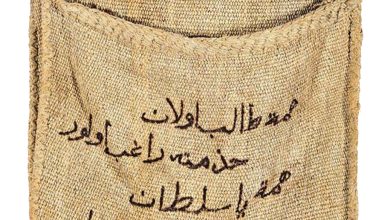 همة طالب اولان
حذمته راغب اولور
همة يا سلطان